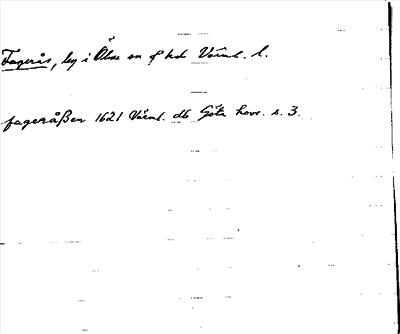 Fagerås, lg i Ölme sn o hd Värml. l.
fageråßen 1621 Värml. db Göta hovr. s. 3.